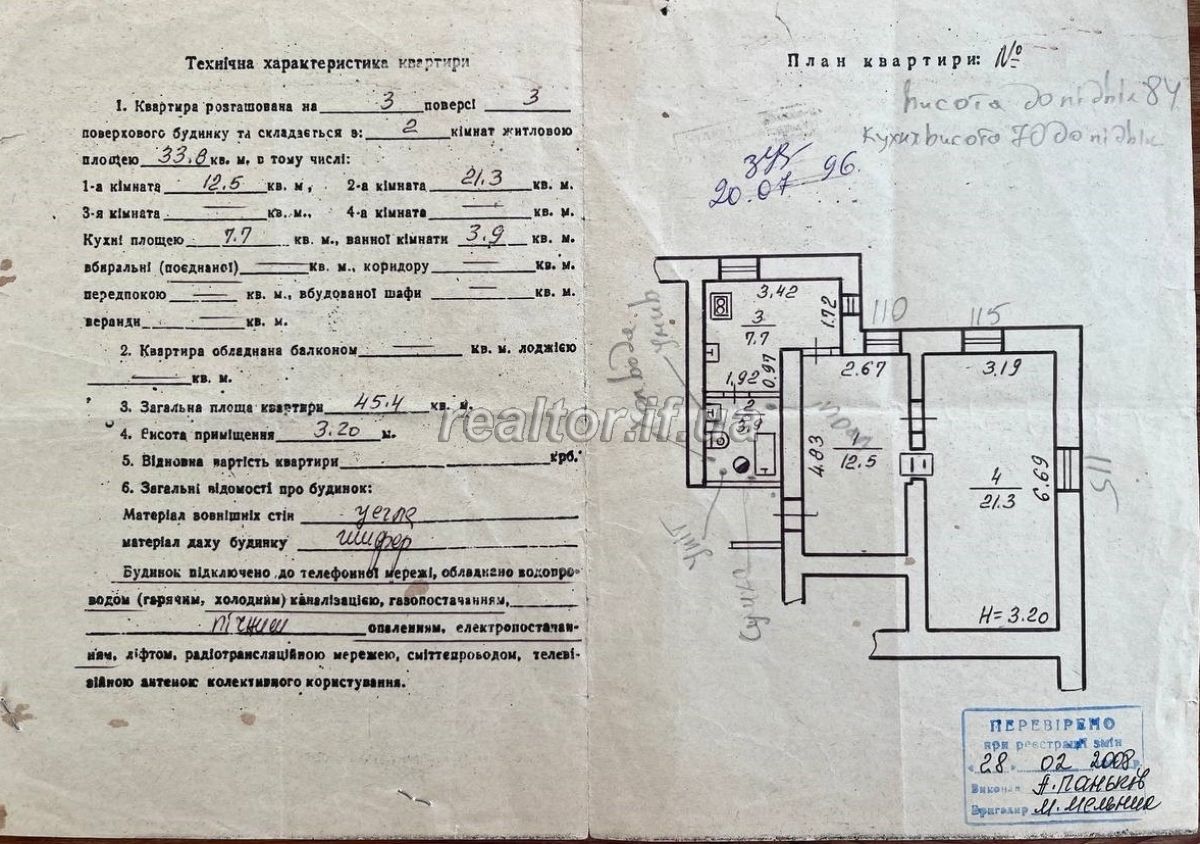 Технічна характеристика квартири
1. Квартира розташована на 3 поверсі 3
поверхового будинку та складається в: 2 кімнат житловою
площею 33.8 кв. м. в тому числі:
1-а кімната 12.5 кв. м, 2-а кімната 21.3 кв. м.
3-я кімната — кв. м., 4-а кімната — кв. м.
Кухні площею 7.7 кв. м., ванної кімнати 3.9 кв. м.
вбиральні (поєднаної) — кв. м., коридору — кв. м.
передпокою — кв. м., вбудованої шафи — кв. м.
веранди — кв. м.
2. Квартира обладнана балконом — кв. м. лоджією
— кв. м.
3. Загальна площа квартири 45.4 кв. м.
4. Висота приміщення 3.20 м.
5. Відновна вартість квартири крб.
6. Загальні відомості про будинок:
Матеріал зовнішніх стін цегла
матеріал даху будинку шифер
Будинок підключено до телефонної мережі, обладнано водопро-
водом (гарячим, холодним) каналізацією, газопостачанням,
пічним опаленням, електропостачан-
ням, ліфтом, радіотрансляційною мережею, сміттєпроводом, телеві-
зійною антеною колективного користування.
План квартири: №
висота до підвік 84
кухня висота 70 до підвік
20.07 96
3.42
3
7.7
1.72
110
115
1.92
0.97
2.67
3.19
2
3.9
4.83
1
12.5
4
21.3
6.69
115
H=3.20
realtor.if.ua
ПЕРЕВІРЕНО
при реєстрації змін
"28" 02 2008р.
Виконав А. Паньків
Бригадир М. Мельник